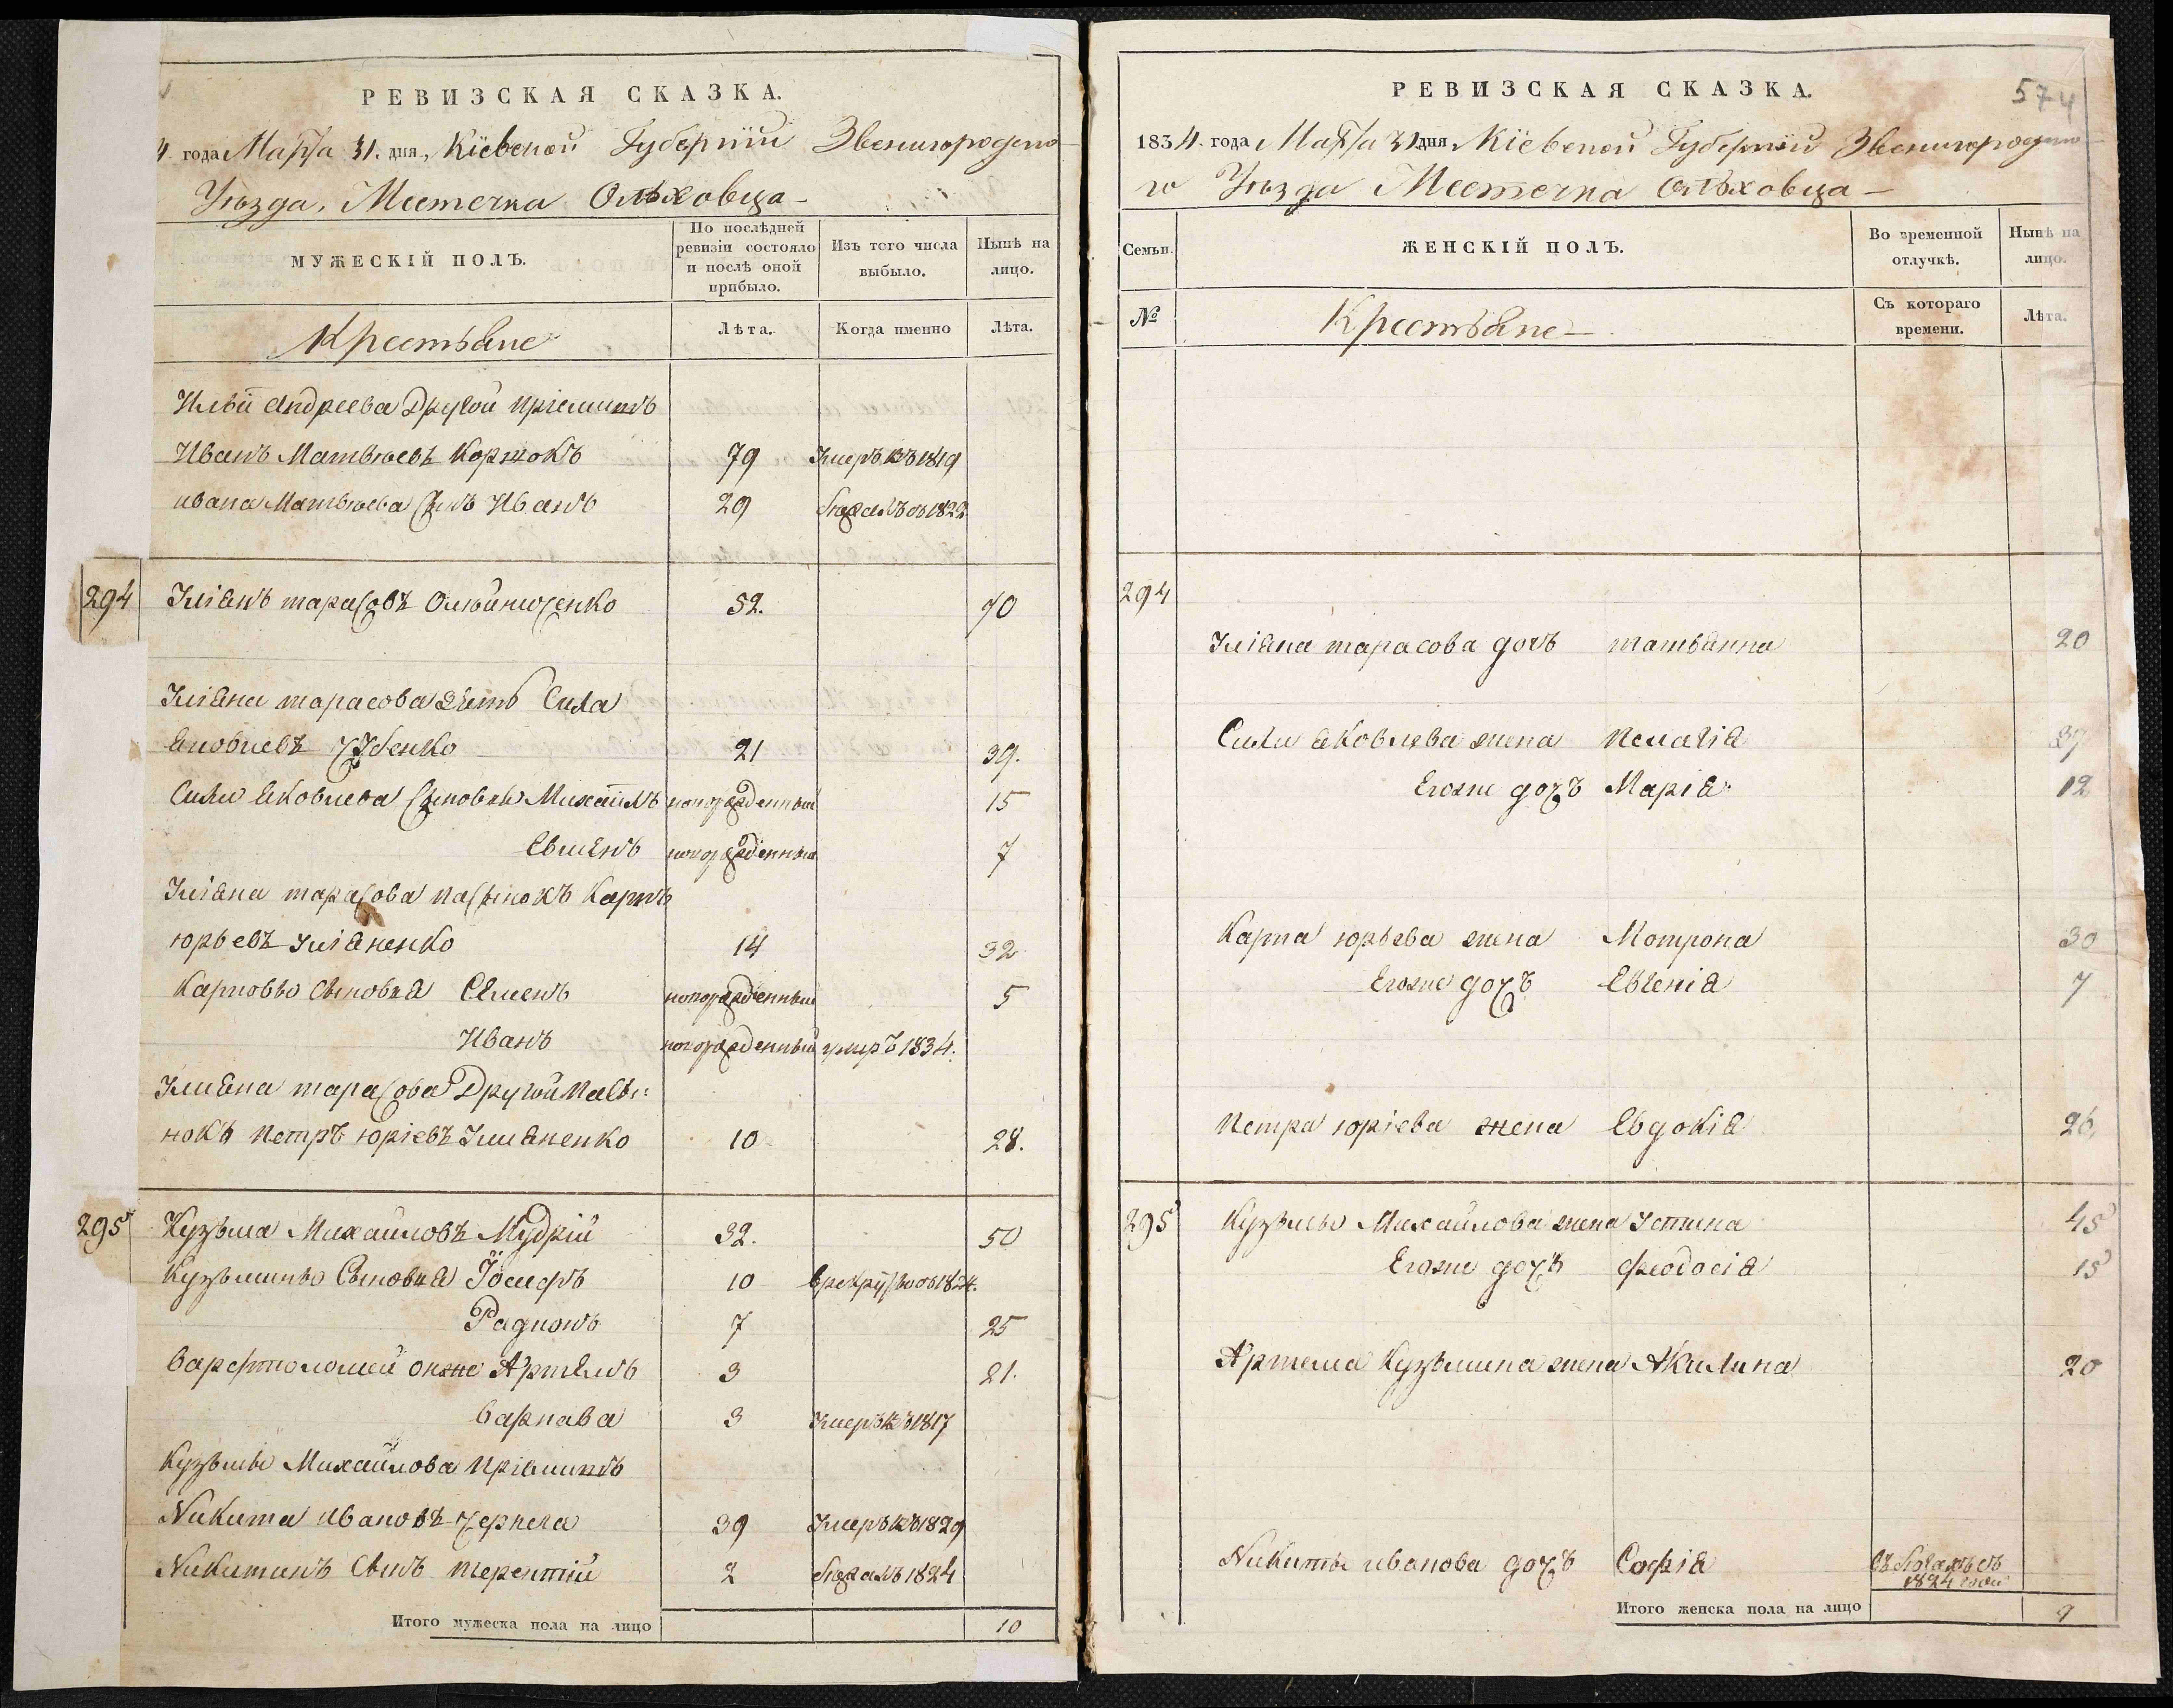 РЕВИЗСКАЯ СКАЗКА.
4 года Марта 31. дня, Кіевской Губерніи Звенигородско-
Уѣзда, Местечка Ольховца-
МУЖЕСКІЙ ПОЛЪ.
По послѣдней ревизіи состояло и послѣ оной прибыло.
Изъ того числа выбыло.
Нынѣ на лицо.
Крестьяне
Лѣта.
Когда именно
Лѣта.
Ильи Андреева Другой приемишъ
Иванъ Матвѣевъ Коржокъ 79 Умеръ въ 1819
ивана Матвѣева Сынъ Иванъ 29 бежалъ въ 1822
294 Уліянъ тарасовъ 52. 70
Уліяна тарасова зять Сила
Яковлевъ 21 39.
Силы Яковлева Сыновья Михайлъ новорожденный 15
новорожденный 7
Уліяна тарасова пасынокъ Карпъ
юрьевъ уліяненко 14 32
Карповы Сыновья Семенъ новорожденный 5
Иванъ новорожденный умеръ 1834.
Улияна тарасова Другой пасы-
нокъ Петръ юріевъ Улияненко 10 28.
295 Кузьма Михайловъ Мудрій 32. 50
Кузьмины Сыновья Іосифъ 10 въ 1824.
Радионъ 7 25
Варфтоломей онже Артемъ 3 21.
Варнава 3 Умеръ въ 1817
Кузьмы Михайлова приемишъ
Никита ивановъ Чернега 39 Умеръ въ 1829
Никитинъ Сынъ терентій 2 бежалъ 1824
Итого мужеска пола на лицо 10
РЕВИЗСКАЯ СКАЗКА.
574
1834. года Марта 31 дня Кіевской Губерніи Звенигородско-
го Уѣзда Местечка Ольховца-
Семьи.
ЖЕНСКІЙ ПОЛЪ.
Во временной отлучкѣ.
Нынѣ на лицо.
№
Крестьяне-
Съ котораго времени.
Лѣта.
294
Уліяна тарасова дочь татьянна 20
Силы яковлева жена Пелагія 37
Егоже дочъ Марія 12
Карпа юрьева жена Мотрона 30
Егоже дочъ Евгенія 7
Петра юріева жена Евдокія 26
295 Кузьмы Михайлова жена устина 45
Егоже дочъ Феодосія 15
Артема Кузьмина жена Акилина 20
Никиты иванова дочъ Софія въ бегахъ съ
1824 года
Итого женска пола на лицо 9